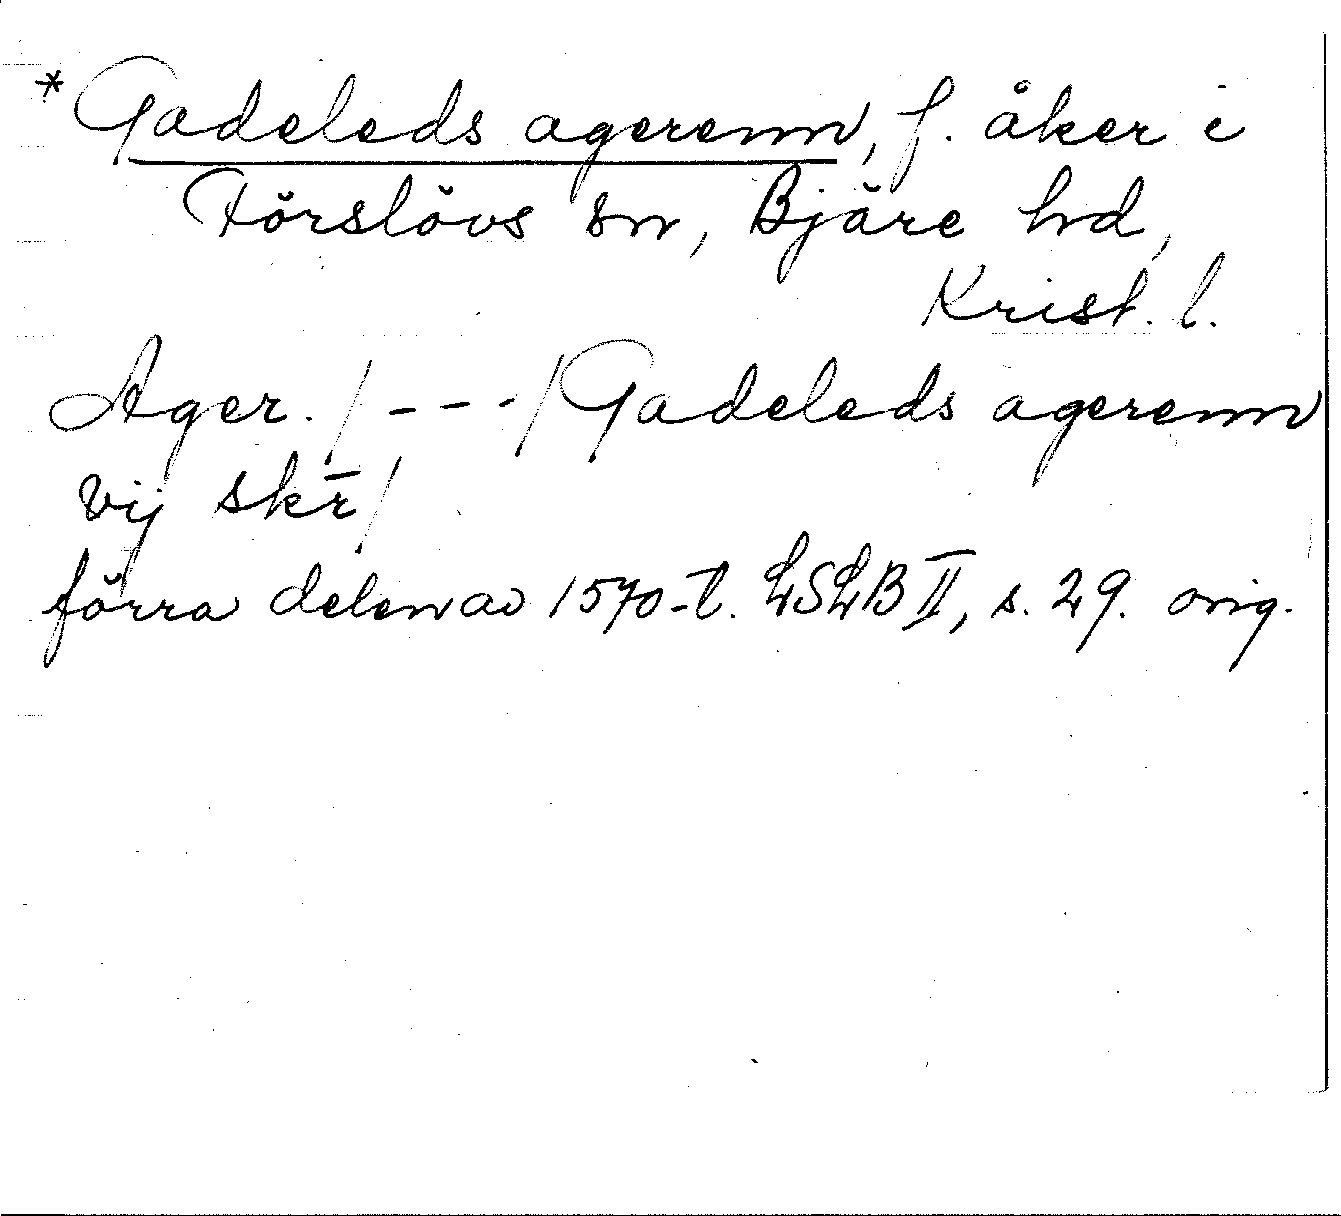 * Gadeleds agerenn, f. åker i
Förslövs sn, Bjäre hd,
Krist. l.
Ager. / - - - / Gadeleds agerenn
vij skr̄ /
förra delen av 1570-t. LSLB II, s. 29. orig.